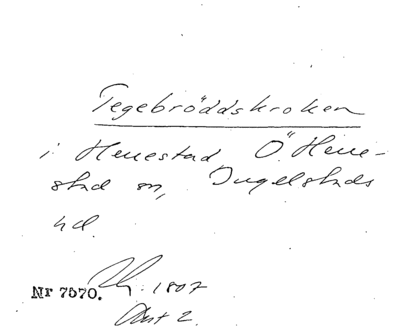 Tegebröddskroken
i Herrestad, Ö. Herre-
stad sn, Ingelstads
hd.
Nr 7570. 1807
Akt 2.